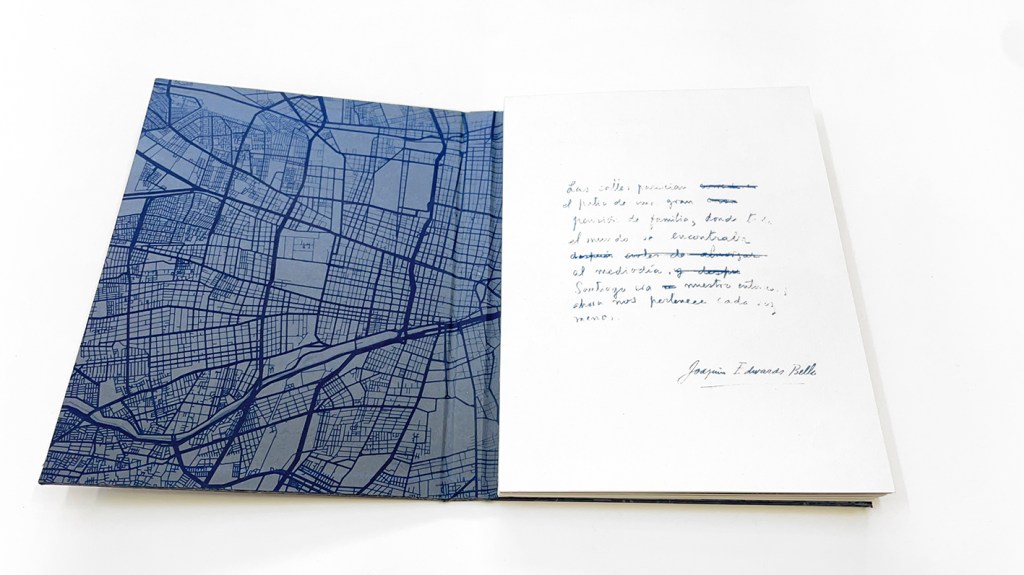 Las calles parecían
el patio de una gran
pensión de familia, donde
el mundo se encontraba
después antes de almorzar
al mediodía. y despu
Santiago era nuestro entonces;
ahora nos pertenece cada vez
menos.
Joaquín Edwards Bello